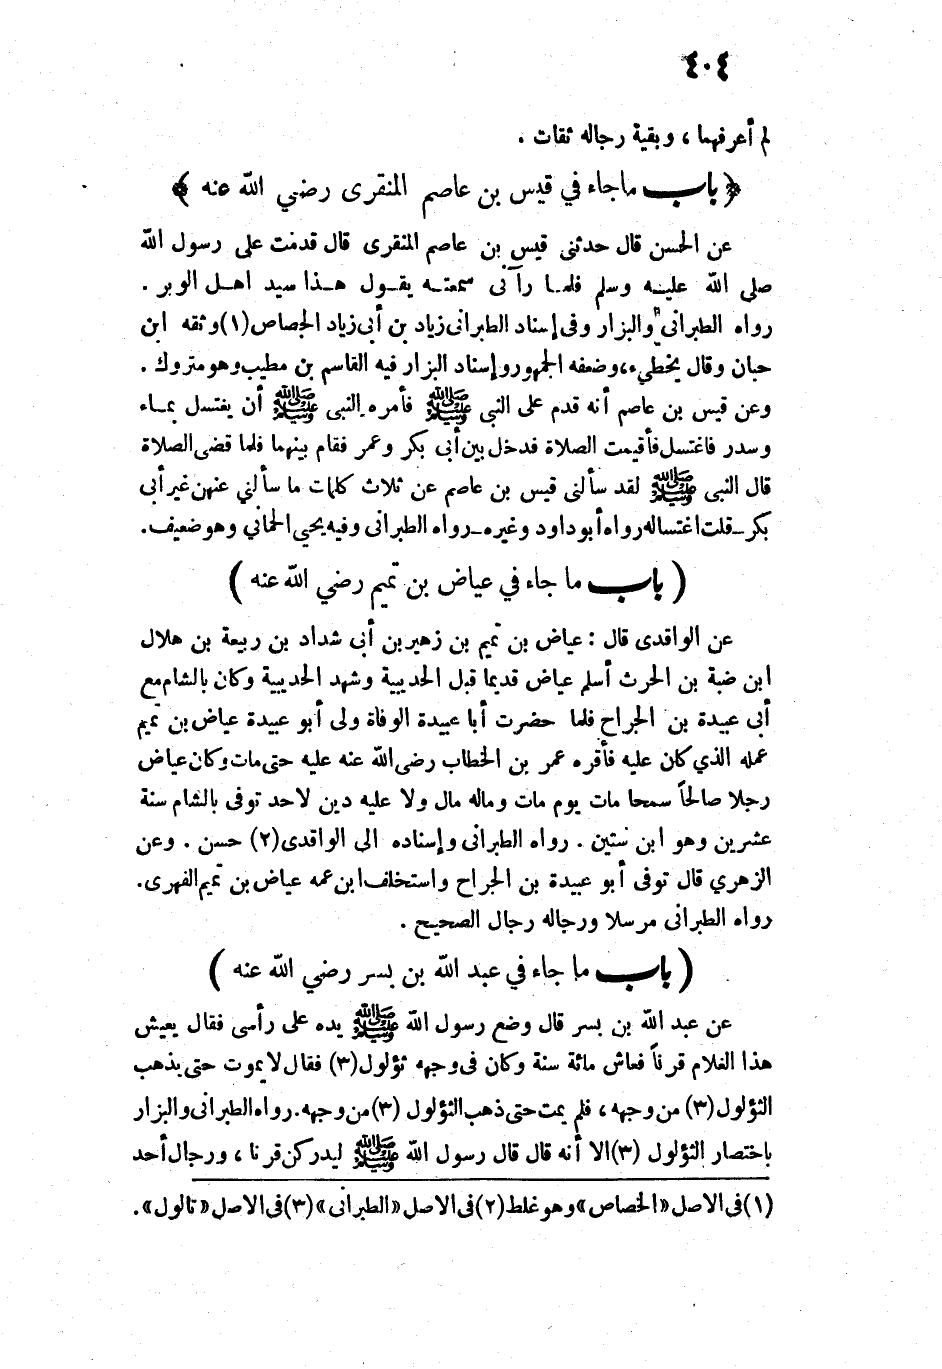 ٤٠٤
لم أعرفهما ، وبقية رجاله ثقات .
﴿ باب ماجاء في قيس بن عاصم المنقرى رضي الله عنه ﴾
عن الحسن قال حدثنى قيس بن عاصم المنقرى قال قدمت على رسول الله
صلى الله عليه وسلم فلما رآنى سمعته يقول هذا سيد اهل الوبر .
رواه الطبرانى والبزار وفى إسناد الطبرانى زياد بن أبى زياد الجصاص(١)وثقه ابن
حبان وقال يخطىء،وضعفه الجمهور وإسناد البزار فيه القاسم بن مطيب وهو متروك .
وعن قيس بن عاصم أنه قدم على النبى ﷺ فأمره النبى ﷺ أن يغتسل بماء
وسدر فاغتسل فأقيمت الصلاة فدخل بين أبى بكر وعمر فقام بينهما فلما قضى الصلاة
قال النبى ﷺ لقد سألنى قيس بن عاصم عن ثلاث كلمات ما سألني عنهن غير أبى
بكر ــ قلت اغتساله رواه أبو داود وغيره ــ رواه الطبرانى وفيه يحيى الحماني وهو ضعيف .
( باب ما جاء في عياض بن تميم رضي الله عنه )
عن الواقدى قال : عياض بن تميم بن زهير بن أبى شداد بن ربيعة بن هلال
ابن ضبة بن الحرث أسلم عياض قديما قبل الحديبية وشهد الحديبية وكان بالشام مع
أبى عبيدة بن الجراح فلما حضرت أبا عبيدة الوفاة ولى أبو عبيدة عياض بن تميم
عمله الذي كان عليه فأقره عمر بن الخطاب رضى الله عنه عليه حتى مات وكان عياض
رجلا صالحاً سمحا مات يوم مات وماله مال ولا عليه دين لاحد توفى بالشام سنة
عشرين وهو ابن ستين . رواه الطبرانى وإسناده الى الواقدى(٢) حسن . وعن
الزهري قال توفى أبو عبيدة بن الجراح واستخلف ابن عمه عياض بن تميم الفهرى .
رواه الطبرانى مرسلا ورجاله رجال الصحيح .
( باب ما جاء في عبد الله بن بسر رضي الله عنه )
عن عبد الله بن بسر قال وضع رسول الله ﷺ يده على رأسى فقال يعيش
هذا الغلام قرناً فعاش مائة سنة وكان فى وجهه ثؤلول(٣) فقال لا يموت حتى يذهب
الثؤلول(٣) من وجهه ، فلم يمت حتى ذهب الثؤلول (٣)من وجهه. رواه الطبرانى والبزار
باختصار الثؤلول (٣)الا أنه قال قال رسول الله ﷺ ليدركن قرنا ، ورجال أحد
(١)فى الاصل«الخصاص»وهو غلط(٢)فى الاصل«الطبرانى»(٣)فى الاصل«تالول».